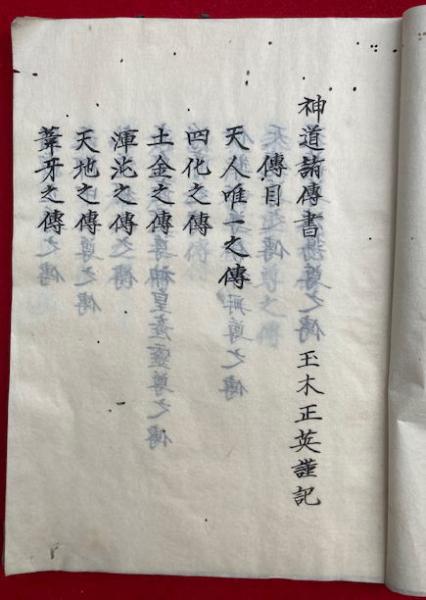 神道諸傳書 玉木正英謹記
傳目
天人唯一之傳
四化之傳
土金之傳
渾沌之傳
天地之傳
葦牙之傳